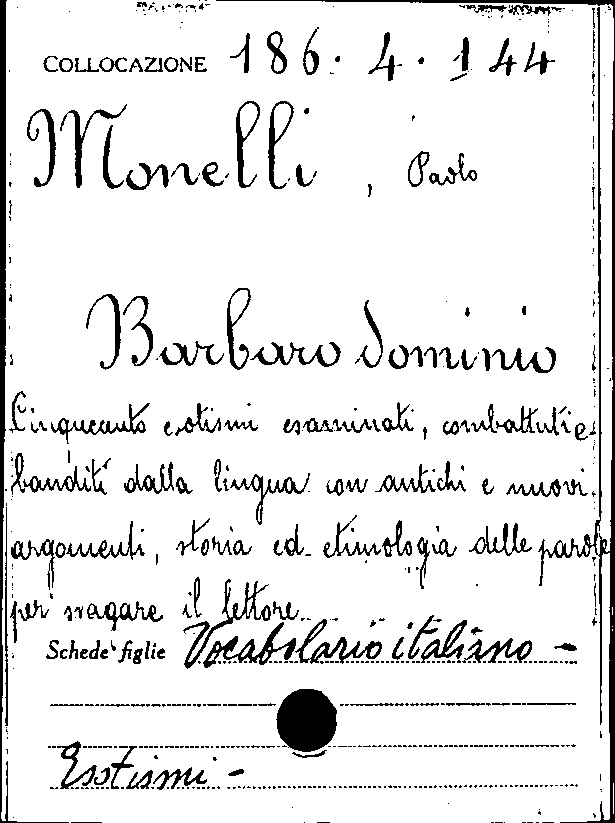 COLLOCAZIONE 186. 4. 144
Monelli, Paolo
Barbaro dominio
Cinquecento esotismi esaminati, combattuti e
banditi dalla lingua con antichi e nuovi
argomenti, storia ed etimologia delle parole
per svagare il lettore.
Schede figlie Vocabolario italiano -
Esotismi -